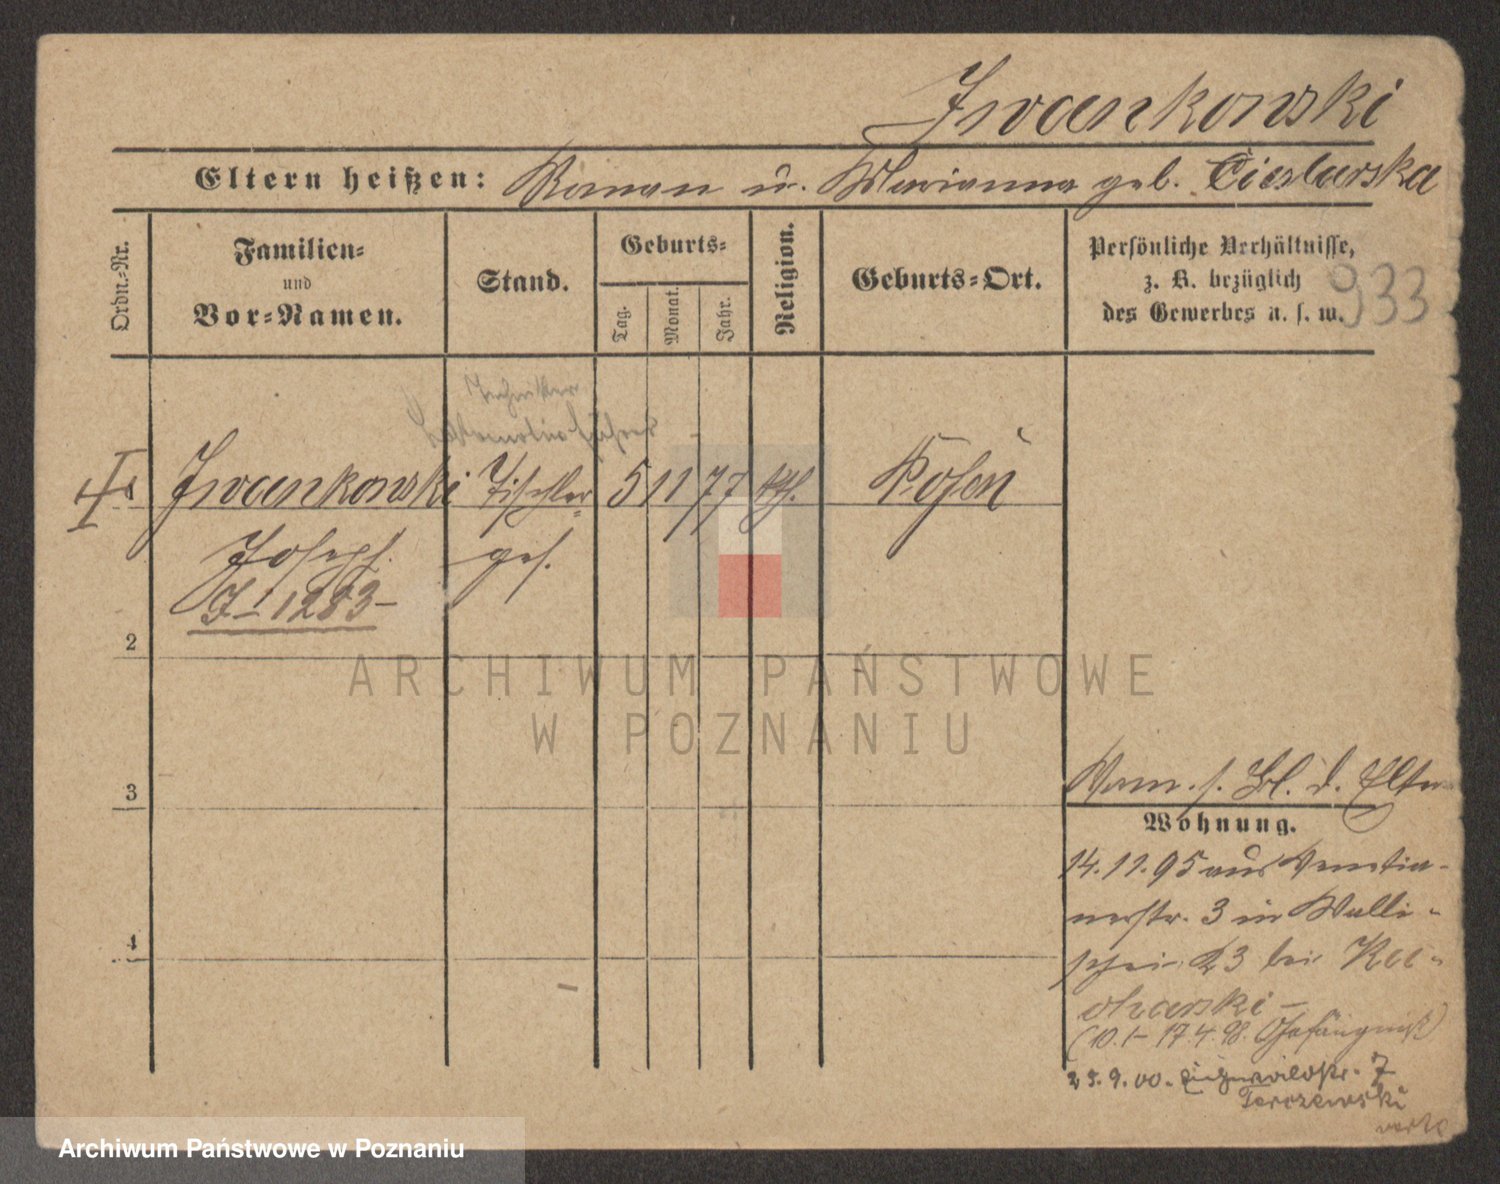 Iwankowski
Eltern heißen: Roman u. Marianna geb. Cieslarska
Ordn.-Nr.
Familien-
und
Vor-Namen.
Stand.
Geburts-
Tag.
Monat.
Jahr.
Religion.
Geburts-Ort.
Persönliche Verhältnisse,
z. B. bezüglich
des Gewerbes u. s. w.
933
Techniker
Iwankowski Tischler 5 11 77 kth. Posen
Joseph ges.
J-1283-
2
3
4
ARCHIWUM PAŃSTWOWE
W POZNANIU
s. Bl. d. Eltern
Wohnung.
14.11.95 aus Venetia-
nerstr. 3 in Walli-
schei 23 bei
(10.1-17.4.98. Gefängniß)
25.9.00. 7
Tarczewski
verte
Archiwum Państwowe w Poznaniu